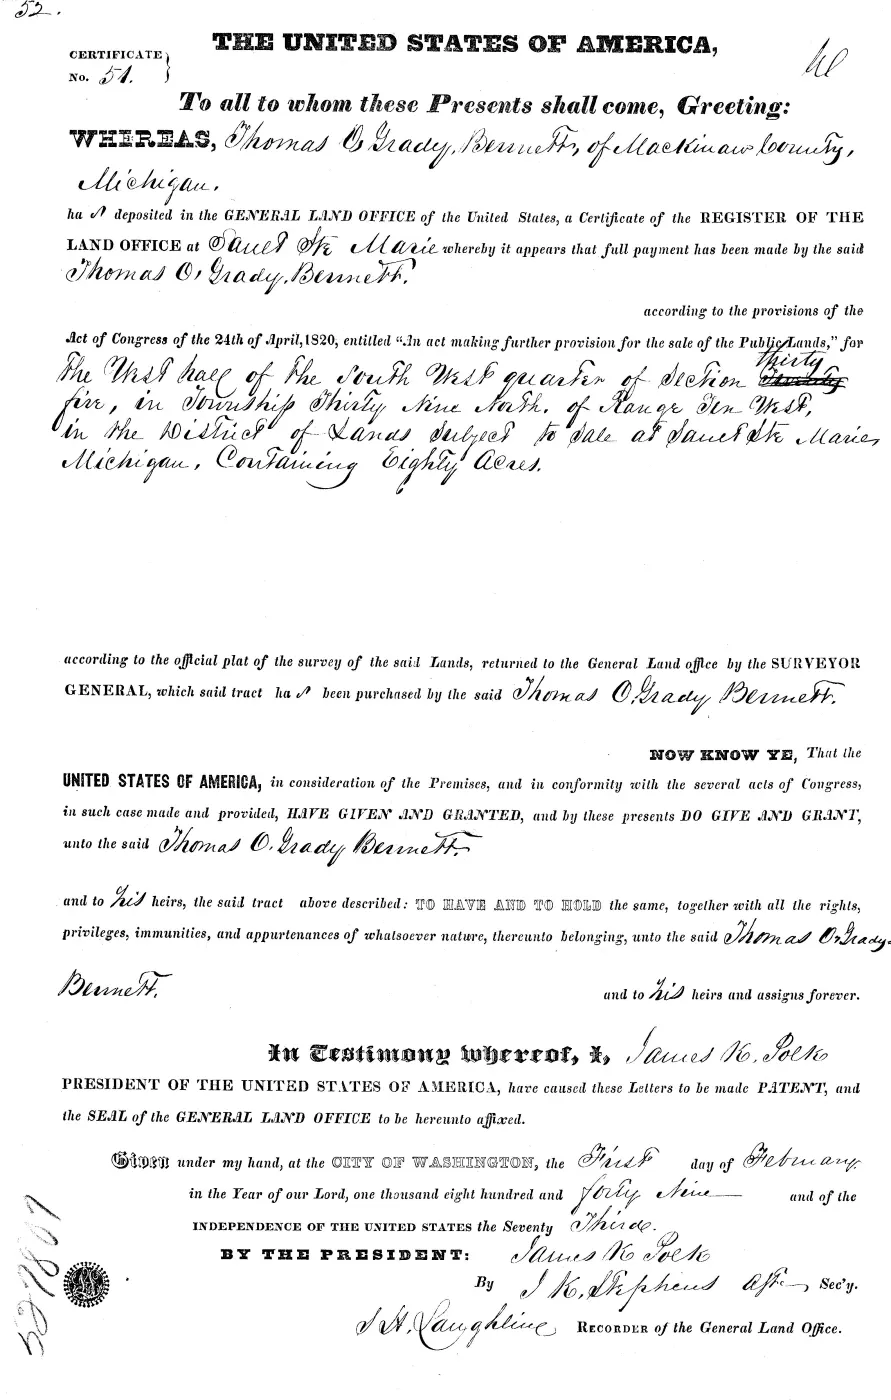 52.
THE UNITED STATES OF AMERICA,
CERTIFICATE
No. 51.
To all to whom these Presents shall come, Greeting:
WHEREAS, Thomas O Grady, Bennett, of Mackinaw County,
Michigan.
ha s deposited in the GENERAL LAND OFFICE of the United States, a Certificate of the REGISTER OF THE
LAND OFFICE at Sault Ste Marie whereby it appears that full payment has been made by the said
Thomas O. Grady, Bennett.
according to the provisions of the
Act of Congress of the 24th of April, 1820, entitled "An act making further provision for the sale of the Public Lands," for
thirty
The West half of the South West quarter of Section
five, in Township Thirty Nine North. of Range Ten West,
in the District of Lands subject to sale at Sault Ste Marie,
Michigan, Containing Eighty Acres.
according to the official plat of the survey of the said Lands, returned to the General Land office by the SURVEYOR
GENERAL, which said tract ha s been purchased by the said Thomas O. Grady Bennett.
NOW KNOW YE, That the
UNITED STATES OF AMERICA, in consideration of the Premises, and in conformity with the several acts of Congress,
in such case made and provided, HAVE GIVEN AND GRANTED, and by these presents DO GIVE AND GRANT,
unto the said Thomas O. Grady Bennett.
and to his heirs, the said tract above described: TO HAVE AND TO HOLD the same, together with all the rights,
privileges, immunities, and appurtenances of whatsoever nature, thereunto belonging, unto the said Thomas O. Grady.
Bennett. and to his heirs and assigns forever.
In Testimony whereof, I, James K. Polk
PRESIDENT OF THE UNITED STATES OF AMERICA, have caused these Letters to be made PATENT, and
the SEAL of the GENERAL LAND OFFICE to be hereunto affixed.
Given under my hand, at the CITY OF WASHINGTON, the First day of February.
in the Year of our Lord, one thousand eight hundred and forty Nine and of the
INDEPENDENCE OF THE UNITED STATES the Seventy Third.
BY THE PRESIDENT: James K Polk
By J K. Stephens Asst Sec'y.
S H. Laughline RECORDER of the General Land Office.